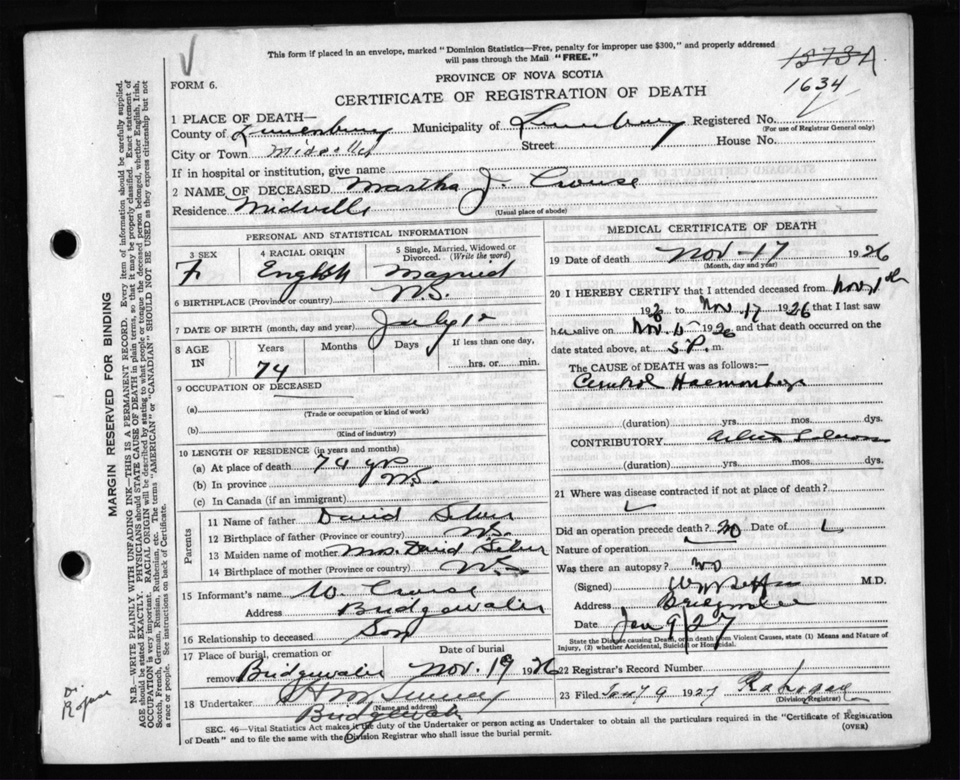 This form if placed in an envelope, marked "Dominion Statistics—Free, penalty for improper use $300," and properly addressed
will pass through the Mail "FREE."
1573A
1634
FORM 6.
PROVINCE OF NOVA SCOTIA
CERTIFICATE OF REGISTRATION OF DEATH
1 PLACE OF DEATH—
County of Lunenburg Municipality of Lunenburg Registered No.
(For use of Registrar General only)
City or Town Midville Street House No.
If in hospital or institution, give name
2 NAME OF DECEASED Martha J. Crouse
Residence Midville (Usual place of abode)
PERSONAL AND STATISTICAL INFORMATION
3 SEX 4 RACIAL ORIGIN 5 Single, Married, Widowed or Divorced. (Write the word)
F English Married
6 BIRTHPLACE (Province or country) N.S.
7 DATE OF BIRTH (month, day and year) July 12
8 AGE IN Years Months Days If less than one day,
74 hrs. or min.
9 OCCUPATION OF DECEASED
(a)
(Trade or occupation or kind of work)
(b)
(Kind of industry)
10 LENGTH OF RESIDENCE (in years and months)
(a) At place of death 74 yrs
(b) In province N.S.
(c) In Canada (if an immigrant)
Parents
11 Name of father David
12 Birthplace of father (Province or country) N.S.
13 Maiden name of mother Mrs. David
14 Birthplace of mother (Province or country) N.S.
15 Informant's name W. Crouse
Address Bridgewater
16 Relationship to deceased Son
17 Place of burial, cremation or removal Date of burial
Bridgewater Nov. 19 1926
18 Undertaker
(Name and address)
Bridgewater
MEDICAL CERTIFICATE OF DEATH
19 Date of death Nov-17 1926
(Month, day and year)
20 I HEREBY CERTIFY that I attended deceased from Nov
192 to Nov. 17 1926 that I last saw
her alive on Nov 1926 and that death occurred on the
date stated above, at 5 P. m.
The CAUSE OF DEATH was as follows:—
Cerebral Haemorrhage
(duration) yrs. mos. dys.
CONTRIBUTORY
(duration) yrs. mos. dys.
21 Where was disease contracted if not at place of death?
Did an operation precede death? No Date of
Nature of operation
Was there an autopsy? No
(Signed) M.D.
Address Bridgewater
Date Jan 9 27
State the Disease causing Death, or in death from Violent Causes, state (1) Means and Nature of
Injury, (2) whether Accidental, Suicidal or Homicidal.
22 Registrar's Record Number 1
23 Filed Jany 9 1927
(Division Registrar)
SEC. 46—Vital Statistics Act makes it the duty of the Undertaker or person acting as Undertaker to obtain all the particulars required in the "Certificate of Registration
of Death" and to file the same with the Division Registrar who shall issue the burial permit. (OVER)
MARGIN RESERVED FOR BINDING
N.B.—WRITE PLAINLY WITH UNFADING INK—THIS IS A PERMANENT RECORD. Every item of information should be carefully supplied.
AGE should be stated EXACTLY. PHYSICIANS should STATE CAUSE OF DEATH in plain terms, so that it may be properly classified. Exact statement of
OCCUPATION is very important. RACIAL ORIGIN will be described by stating to what people or tongue the deceased person belonged, whether English, Irish,
Scotch, French, German, Russian, Ruthenian, etc. The terms "AMERICAN" or "CANADIAN" SHOULD NOT BE USED as they express citizenship but not
a race or people. See instructions on back of Certificate.